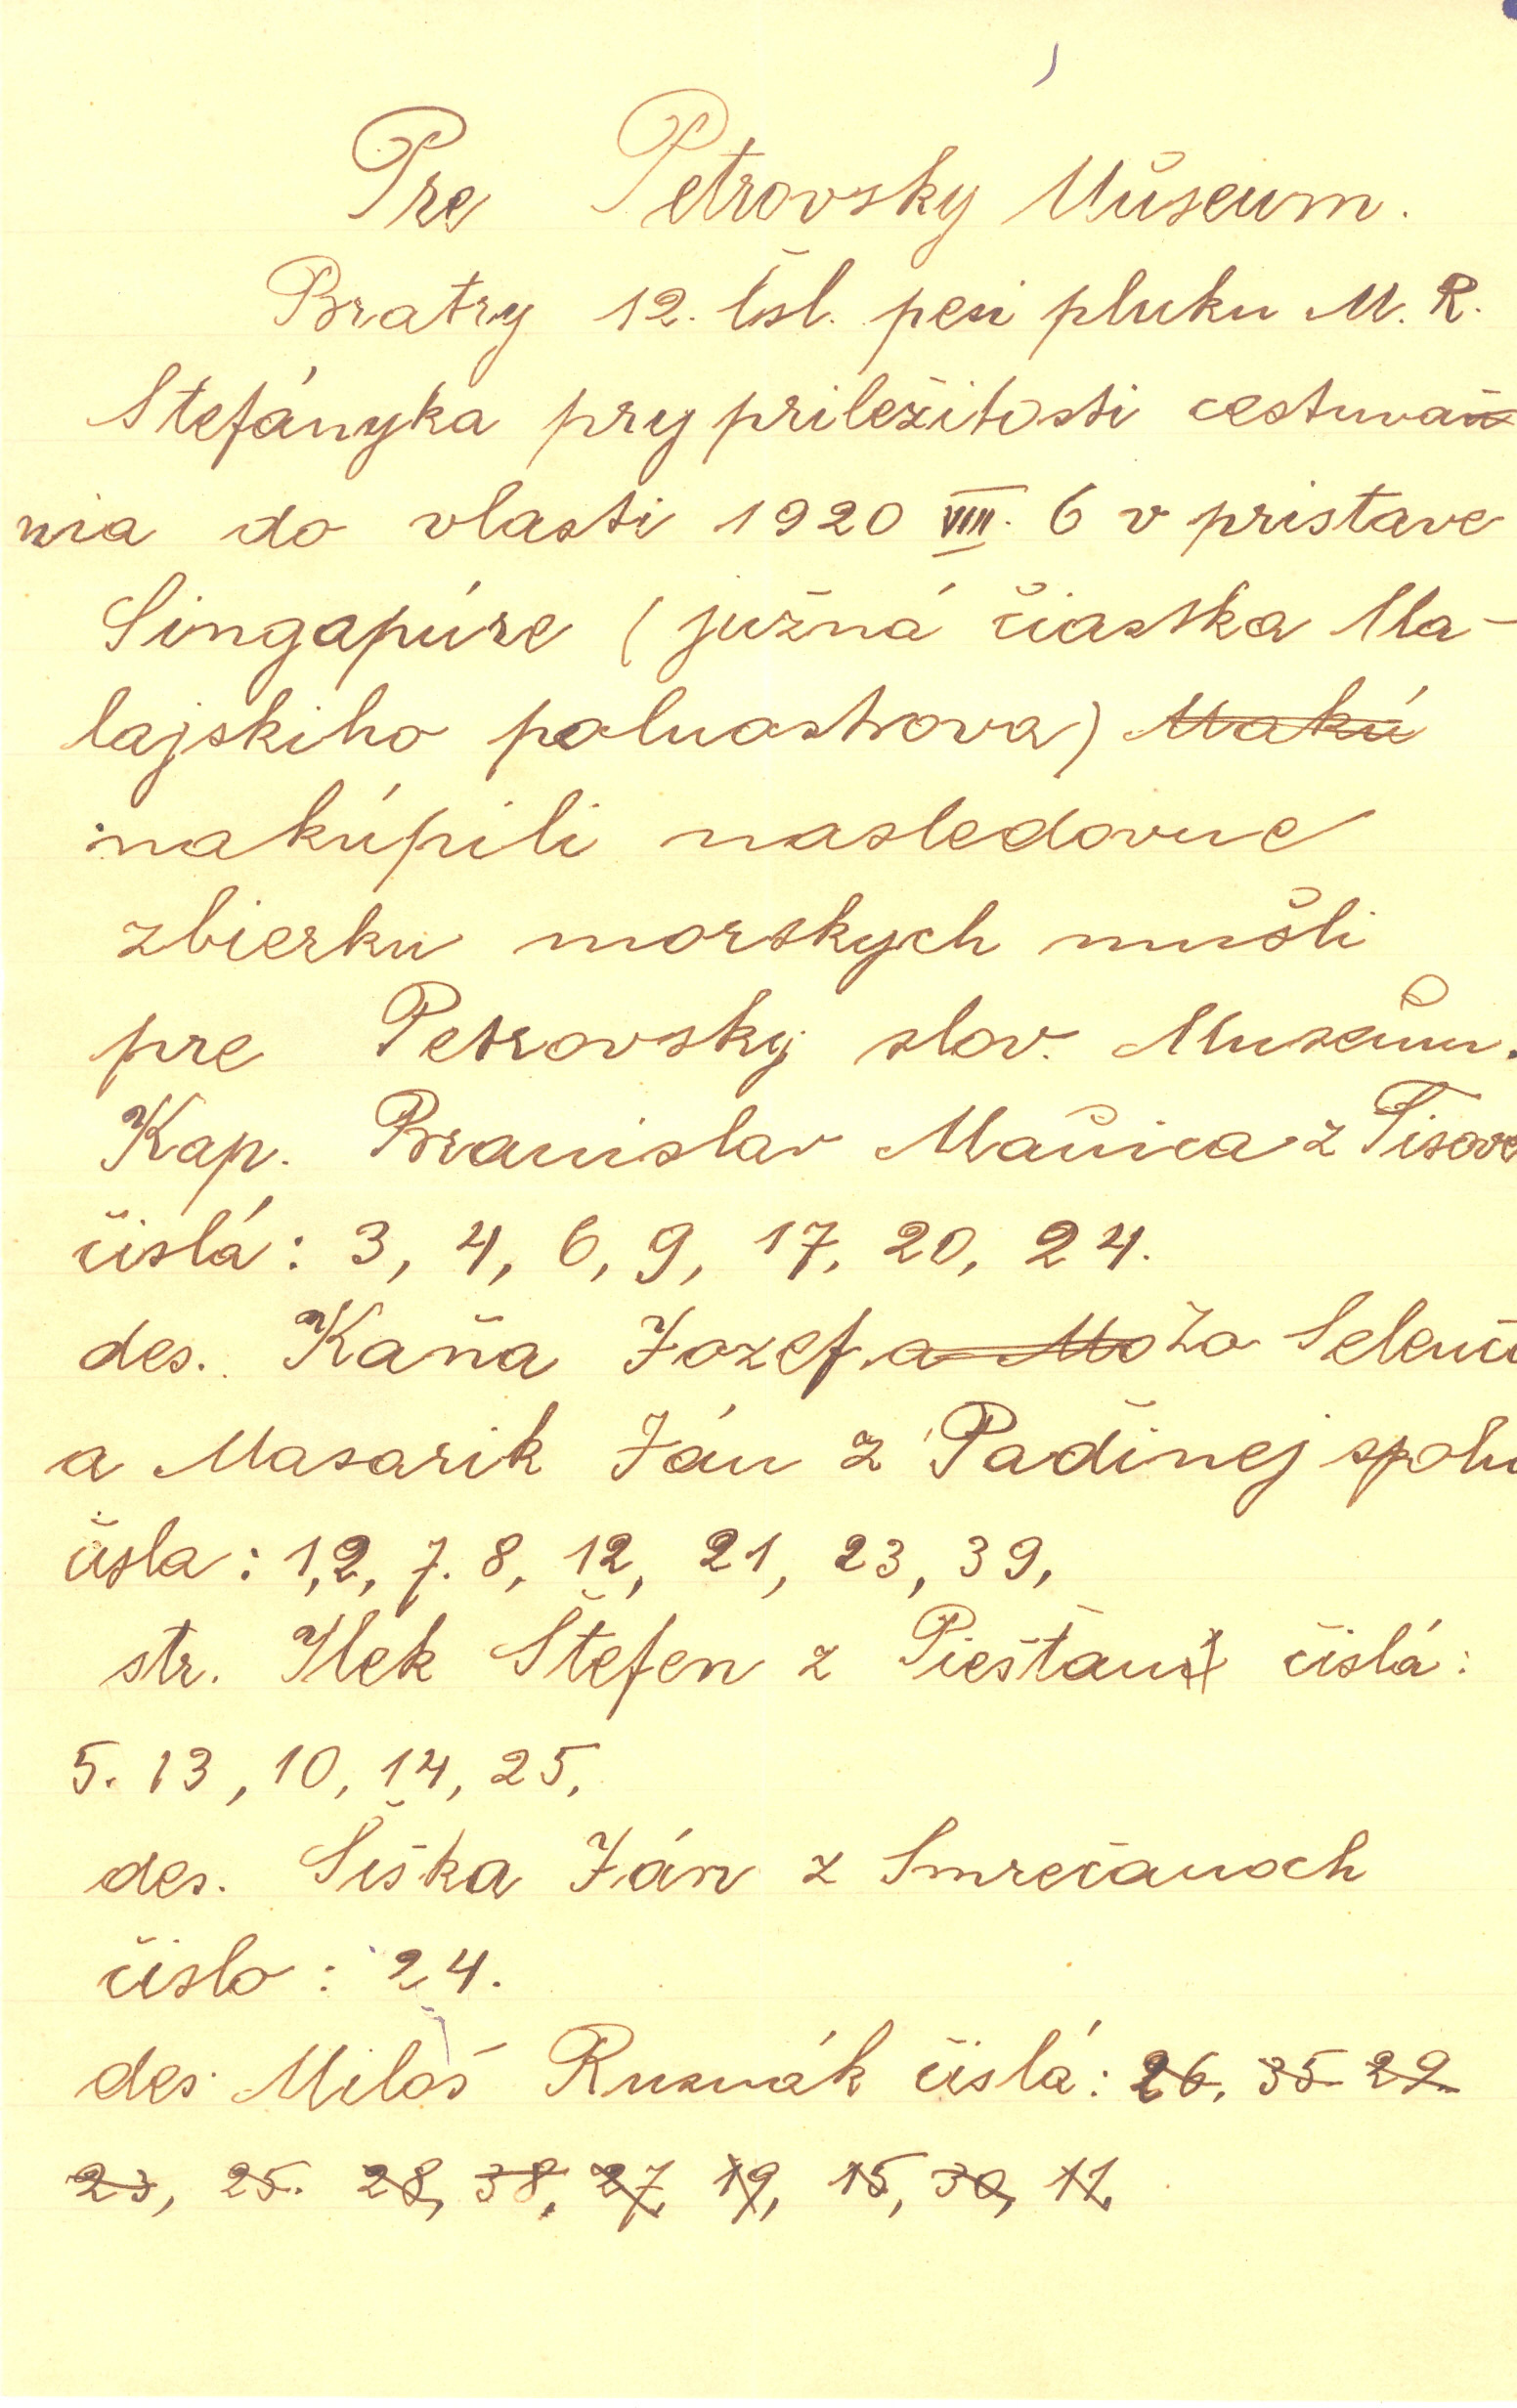 Pre Petrovsky Múseum.
Bratry 12. čsl. peši pluku M. R.
Stefányka pry priležitosti cestuvan
nia do vlasti 1920 VIII. 6 v pristave
Singapúre (južná čiastka Ma-
lajskiho poluostrova) Makú
nakúpili nasledovne
zbierku morskych mušli
pre Petrovsky slov. Museum.
Kap. Branislav Manica z Tisove
čislá: 3, 4, 6, 9, 17, 20, 24.
des. Kaňa Jozef a Mo zo Selenč
a Masarik Ján z Padinej spolu
čisla: 1, 2, 7. 8, 12, 21, 23, 39,
str. Ilek Štefen z Piešťan čislá:
5. 13, 10, 14, 25,
des. Šiška Ján z Smrečanoch
čislo: 24.
des. Miloš Rusnák čislá: 26, 35 29
23, 25. 28, 38, 27, 19, 15, 30, 11,